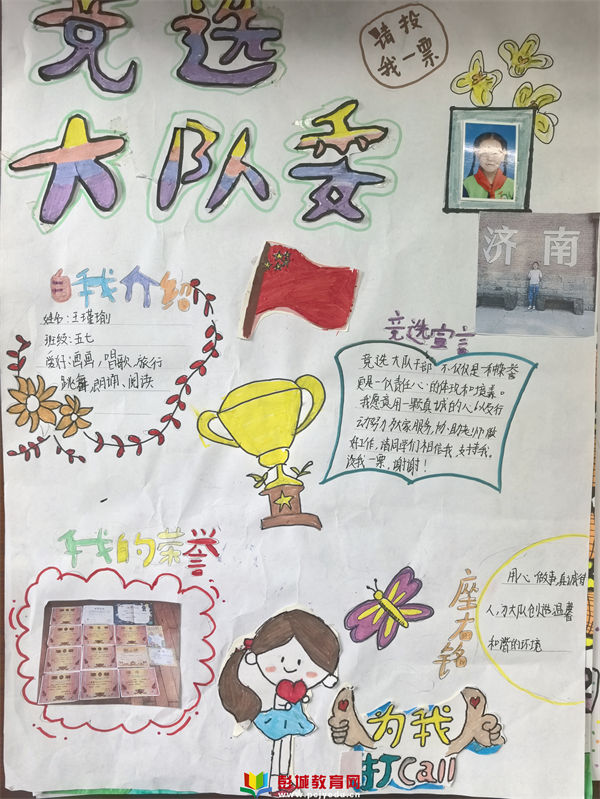 竞选
大队委
请投
我一票
济南
自我介绍
姓名:王瑾瑜
班级:五七
爱好:画画,唱歌,旅行
跳舞,朗诵、阅读
竞选宣言
竞选大队干部不仅仅是一种荣誉
更是一份责任心的体现和接素。
我愿意用一颗真诚的人以及行
动努力为大家服务,协助老师做
好工作,请同学们相信我,支持我。
投我一票,谢谢!
我的荣誉
座右铭
用心做事,真诚待
人,为大队创造温馨
和谐的环境
为我
打call
彭城教育网
www.pcjyedu.cn